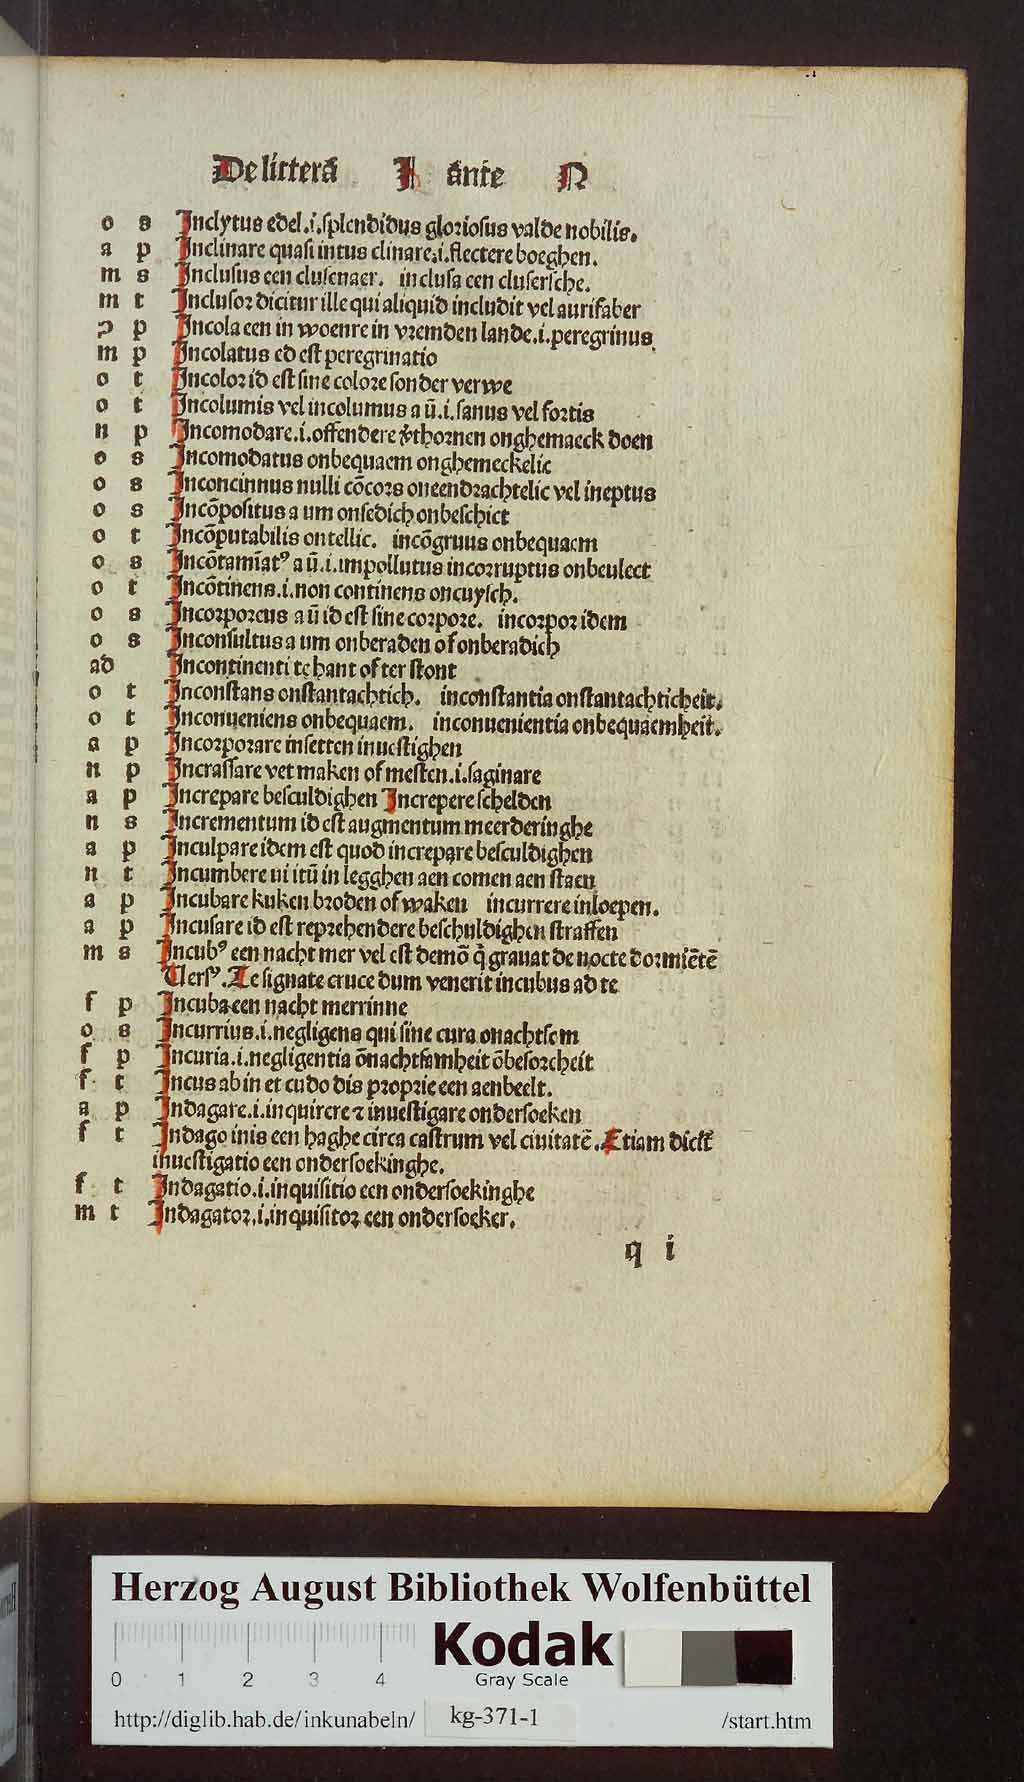 De litterā I ānte N
o s Inclytus edel.i.splendidus gloriosus valde nobilis.
a p Inclinare quasi intus clinare.i.flectere boeghen.
m s Inclusus een clusenaer. inclusa een clusersche.
m t Inclusor dicitur ille qui aliquid includit vel aurifaber
ɔ p Incola een in woenre in vremden lande.i.peregrinus.
m p Incolatus ed est peregrinatio
o t Incolor id est sine colore sonder verwe
o t Incolumis vel incolumus a ū.i.sanus vel fortis
n p Incomodare.i.offendere thornen onghemaeck doen
o s Incomodatus onbequaem onghemeckelic
o s Inconcinnus nulli cōcors oneendrachtelic vel ineptus
o s Incōpositus a um onsedich onbeschict
o t Incōputabilis ontellic. incōgruus onbequaem
o s Incōtamīatꝰ a ū.i.impollutus incorruptus onbeuleet
o t Incōtinens.i.non continens oncuysch.
o s Incorporeus a ū id est sine corpore. incorpor idem
o s Inconsultus a um onberaden of onberadich
ad Incontinenti te hant of ter stont
o t Inconstans onstantachtich. inconstantia onstantachticheit.
o t Inconueniens onbequaem. inconuenientia onbequaemheit.
a p Incorporare insetten inuestighen
n p Incrassare vet maken of mesten.i.saginare
a p Increpare besculdighen Increpere schelden
n s Incrementum id est augmentum meerderinghe
a p Inculpare idem est quod increpare besculdighen
n t Incumbere ui itū in legghen aen comen aen staen
a p Incubare kuken broden of waken incurrere inloepen.
a p Incusare id est reprehendere beschuldighen straffen
m s Incubꝰ een nacht mer vel est demō q̄ grauat de nocte dormiētē
Versꝰ. Te signate cruce dum venerit incubus ad te
f p Incuba een nacht merrinne
o s Incurrius.i.negligens qui sine cura onachtsem
f p Incuria.i.negligentia ōnachtsamheit ōbesorcheit
f t Incus ab in et cudo dis proprie een aenbeelt.
a p Indagare.i.inquirere ⁊ inuestigare ondersoeken
f t Indago inis een haghe circa castrum vel ciuitatē. Etiam dict̄
inuestigatio een ondersoekinghe.
f t Indagatio.i.inquisitio een ondersoekinghe
m t Indagator.i.inquisitor een ondersoeker.
q i
Herzog August Bibliothek Wolfenbüttel
Kodak
Gray Scale
0 1 2 3 4
http://diglib.hab.de/inkunabeln/ kg-371-1 /start.htm